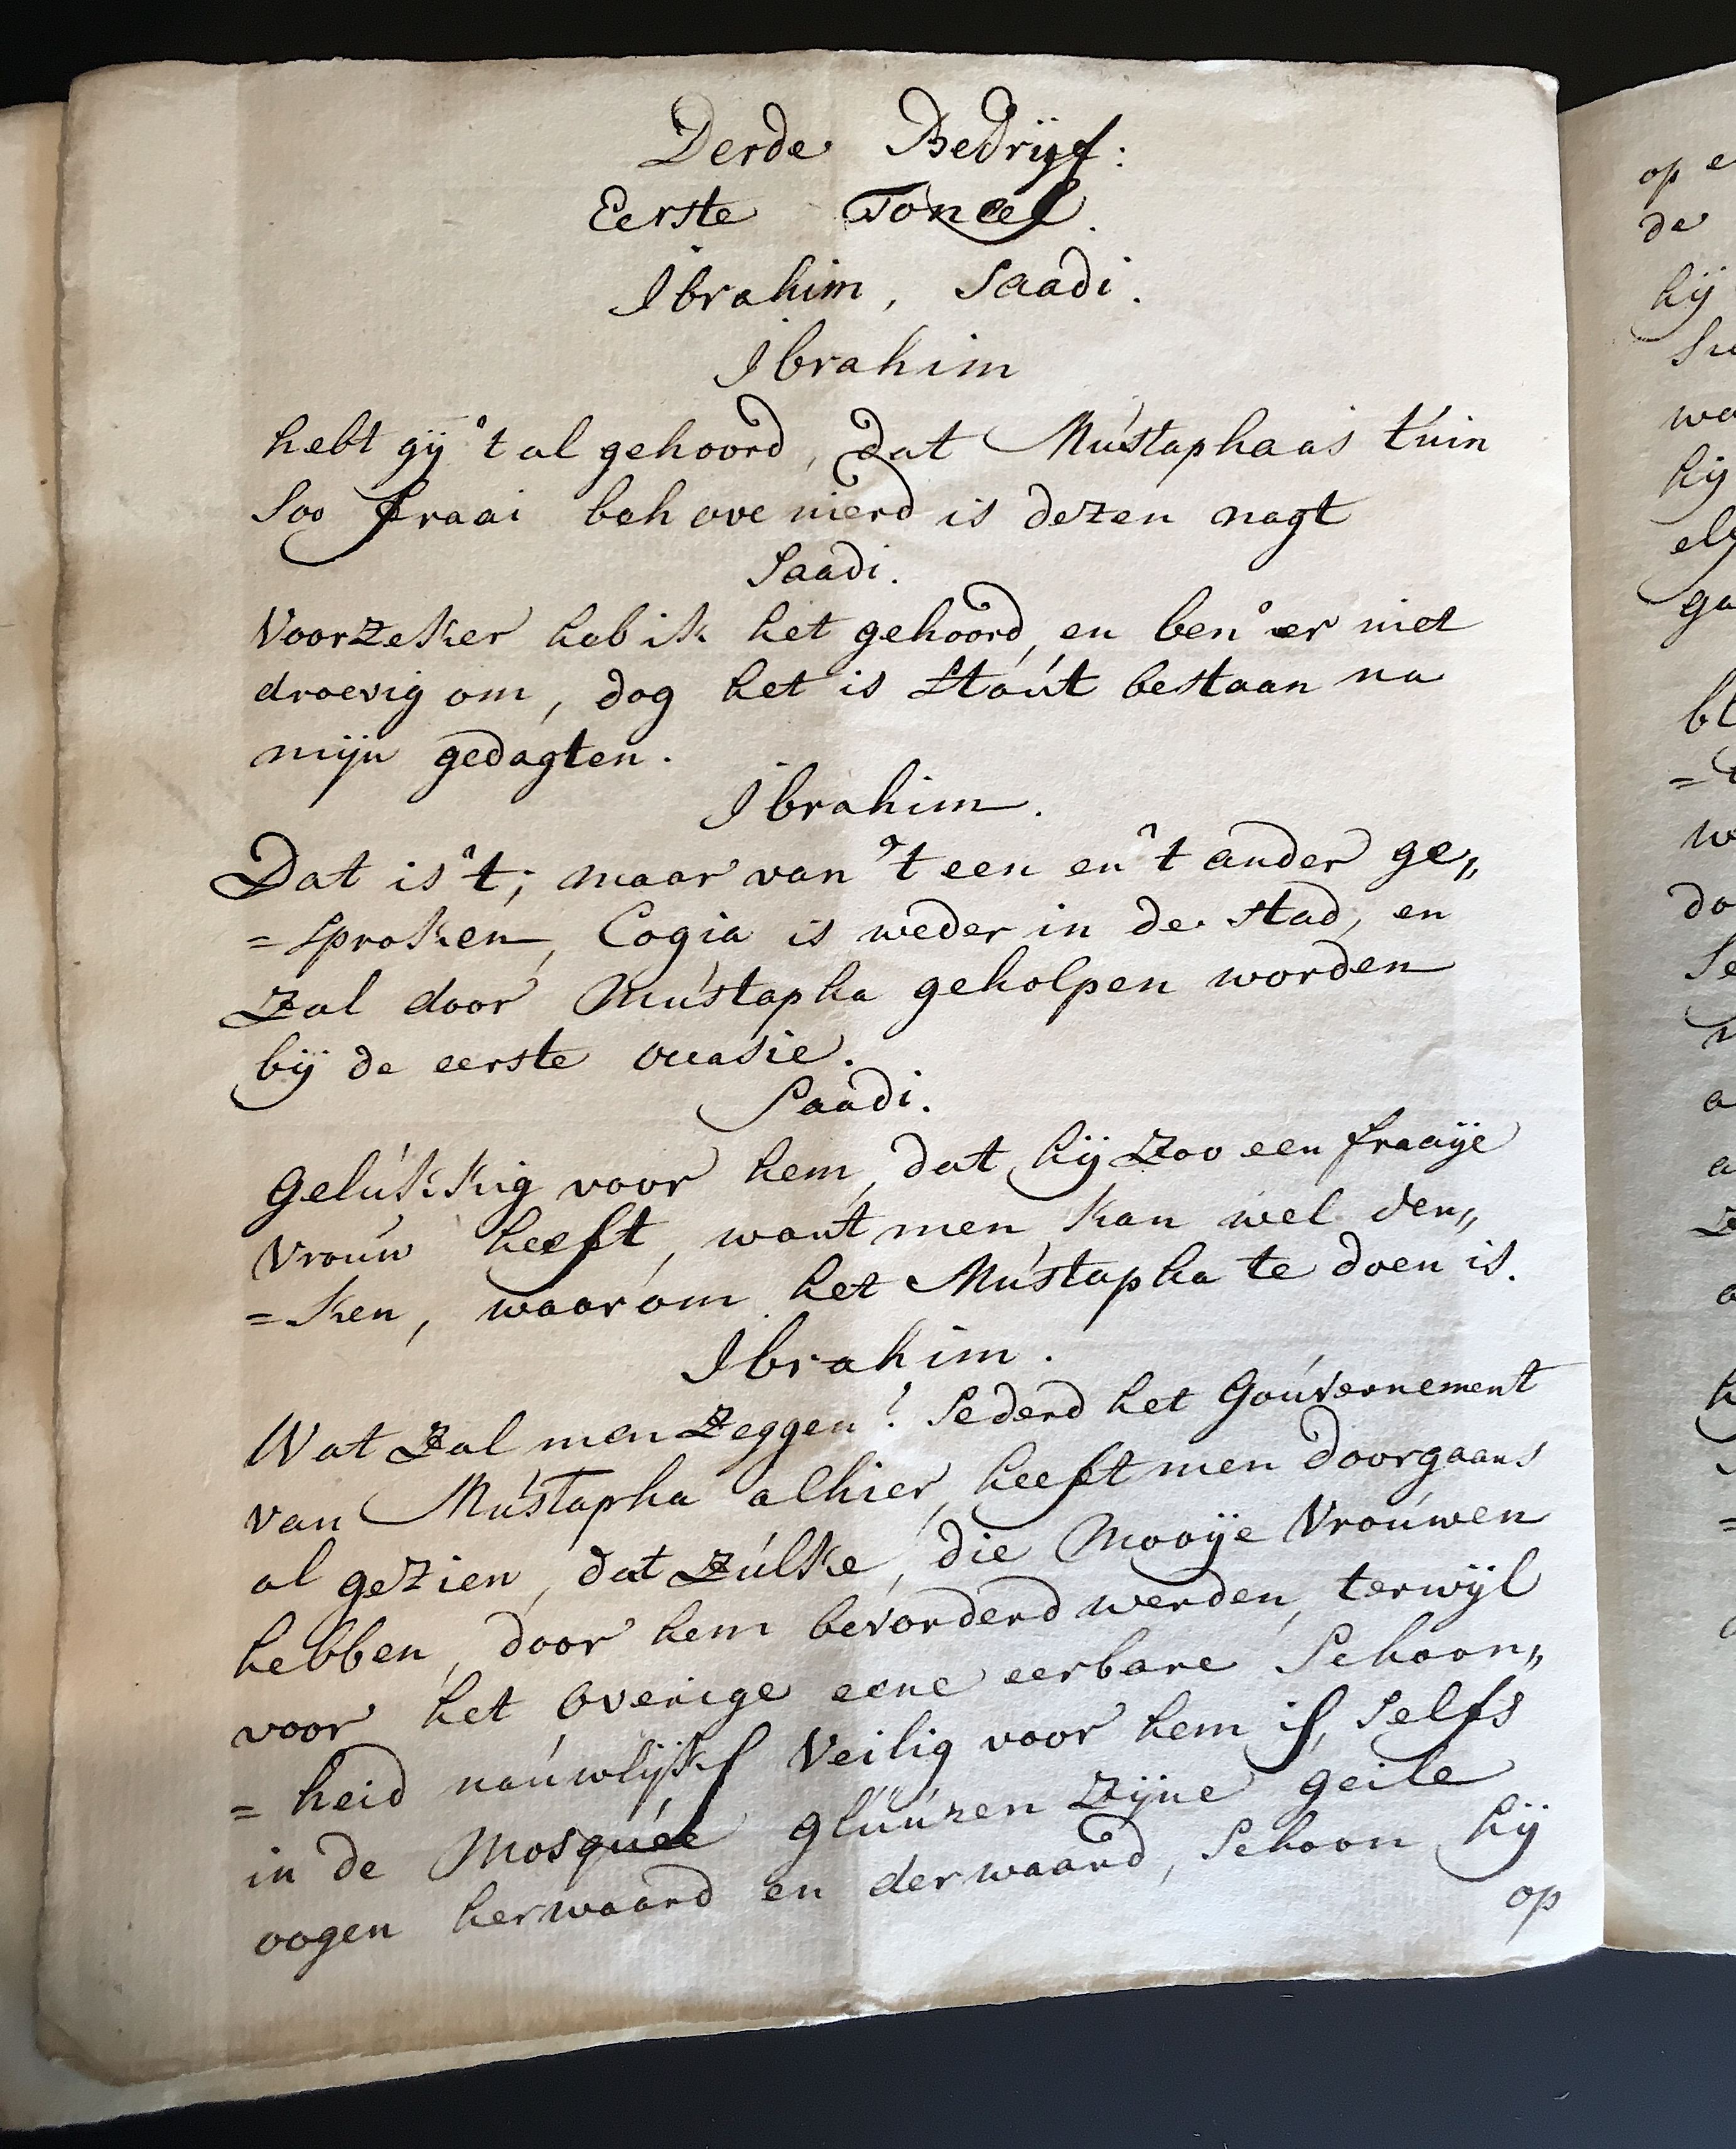 Derde Bedrijf:
Eerste Toneel.
Ibrahim, Saadi.
Ibrahim
hebt gij 't al gehoord, dat Mustaphaas tuin
Soo fraai behovenierd is dezen nagt
Saadi.
Voorzeker heb ik het gehoord, en ben 'er niet
droevig om, dog het is Stout bestaan na
mijn gedagten.
Ibrahim.
Dat is 't; maar van 't een en 't ander ge„
=sproken, Cogia is weder in de stad, en
zal door Mustapha geholpen worden
bij de eerste occasie.
Saadi.
Gelukkig voor hem, dat hij zoo een fraaije
Vrouw heeft, want men kan wel den„
=ken, waarom het Mustapha te doen is.
Ibrahim.
Wat zal men zeggen! Sederd het Gouvernement
van Mustapha alhier, heeft men doorgaans
al gezien, dat zulke, die Mooije Vrouwen
hebben, door hem bevorderd werden, terwijl
voor het Overige eene eerbare Schoon„
=heid nauwlijks Veilig voor hem is, Selfs
in de Mosquée gluuren zijne geile
oogen herwaard en derwaard, Schoon hij
op
op e
de
hij
wa
hij
ga
bl
=
w
do
Se
a
a